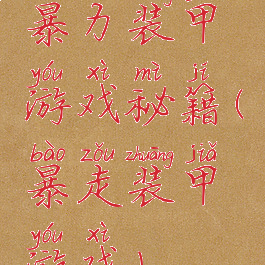 暴力装甲
yóu xì mì jí
游戏秘籍(
bào zǒu zhuāng jiǎ
暴走装甲
yóu xì
游戏)